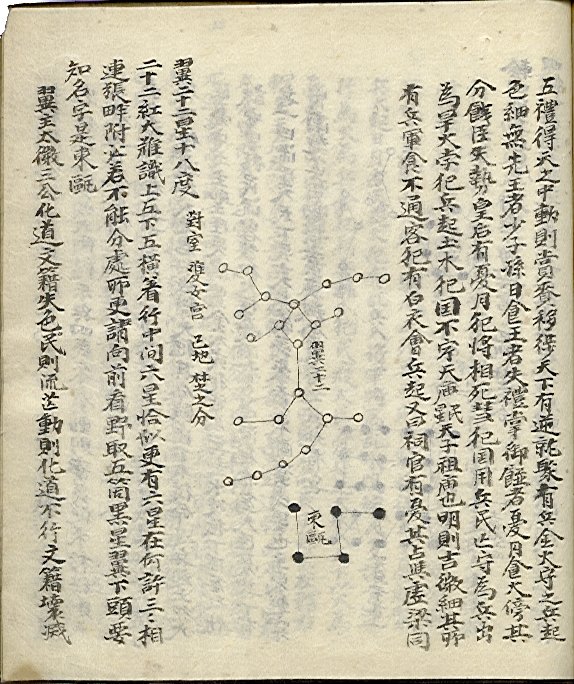 五禮得天之中動則賞賚移徙天下有逆就聚有兵金火守之兵起
色細無先王者少子孫日食王者失禮掌御饌者憂月食大僚其
分饑臣失勢皇后有憂月犯將相死彗犯国用兵民亡守為兵出
為旱大孛犯兵起土水犯国不字天庙天子祖庙也明則吉微細其卯
有兵軍食不通客犯有白衣會兵起又曰祠官有憂其占與虛梁同
翼二十二
東甌
翼二十二星十八度 對室 準女宮 巳地 楚之分
二十二紅大難識上五下五橫着行中间六星恰似更有六星在何許三三相
連張畔附若不能分處卯更請向前看野取五箇黑星翼下頭要
知名字是東甌
翼主太微三公化道文籍失色民則流芒動則化道不行文籍壞滅